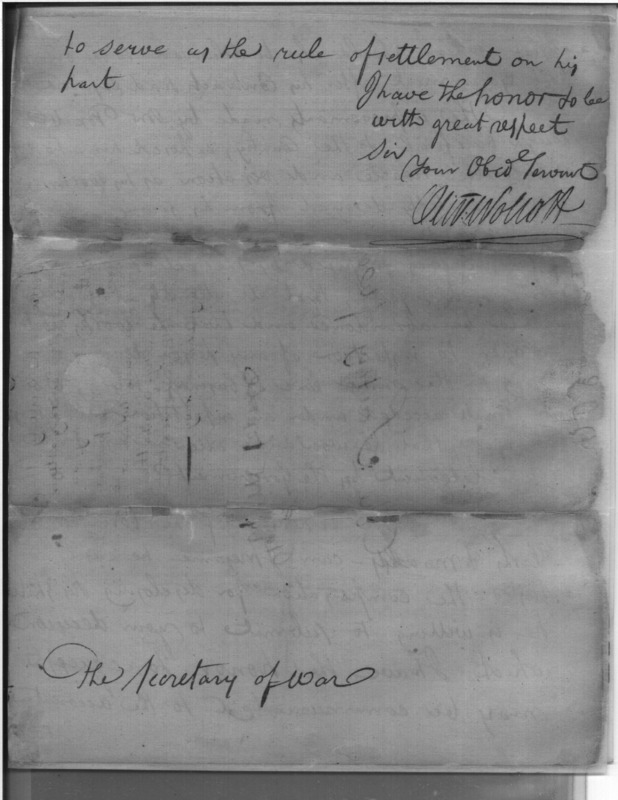 to serve as the rule of settlement on his
part
I have the honor to be
with great respect
Sir
Your Obed Servant
Oliv Wolcott
The Secretary of War